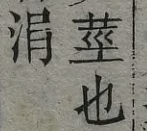 莖也
涓